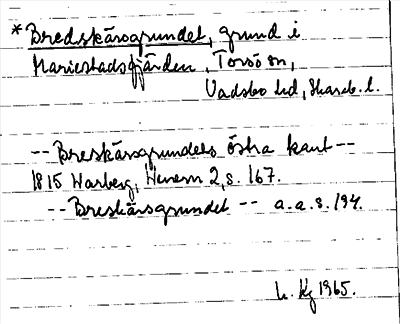 * Bredskärsgrundet, grund i
Mariestadsfjärden, Torsö sn,
Vadsbo hd, Skarab. l.
-- Breskärsgrundets östra kant --
1815 Warberg, Wenern 2, s. 167.
-- Breskärsgrundet -- a.a. s. 194.
1965.